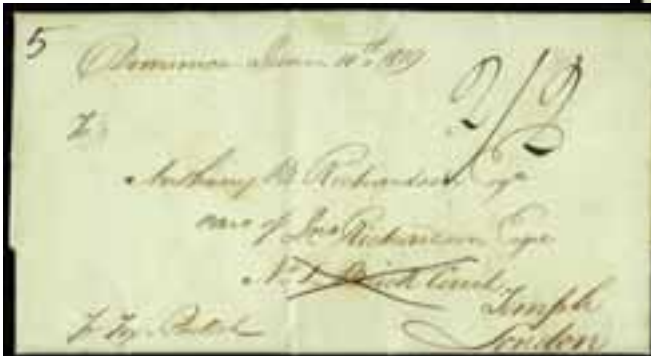 5
Dominica 10th 1819
2/2
To
Anthony Richardson Esqr
care of Jno Richardson Esqr
No 1 Brick Court
Temple
London